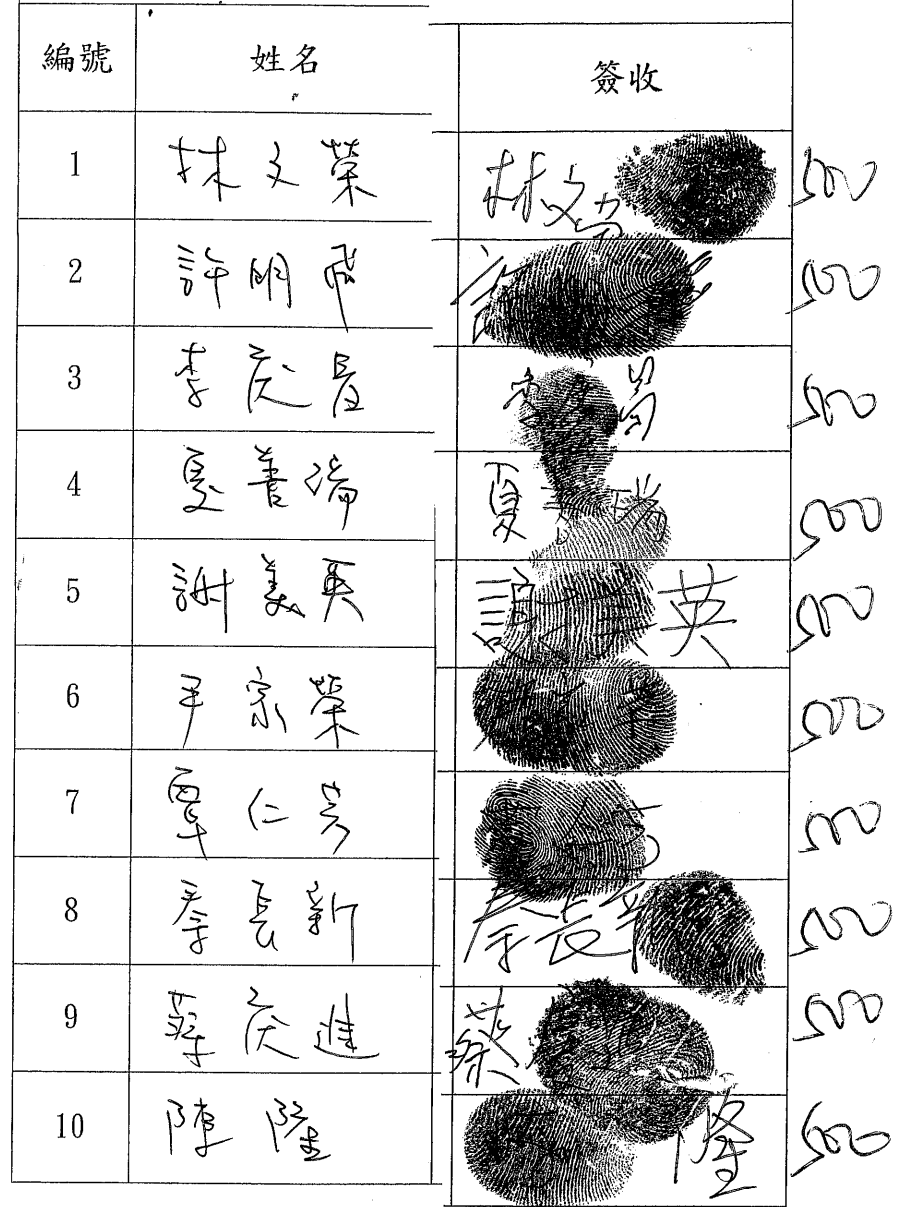 編號 姓名 簽收
1 林文榮 林文 500
2 許明飛 500
3 李慶昌 500
4 夏善瑞 夏 瑞 500
5 謝美英 英 500
6 尹宗榮 500
7 覃仁芳 500
8 秦長新 秦長新 500
9 蔡慶進 蔡 500
10 陳隆 隆 500